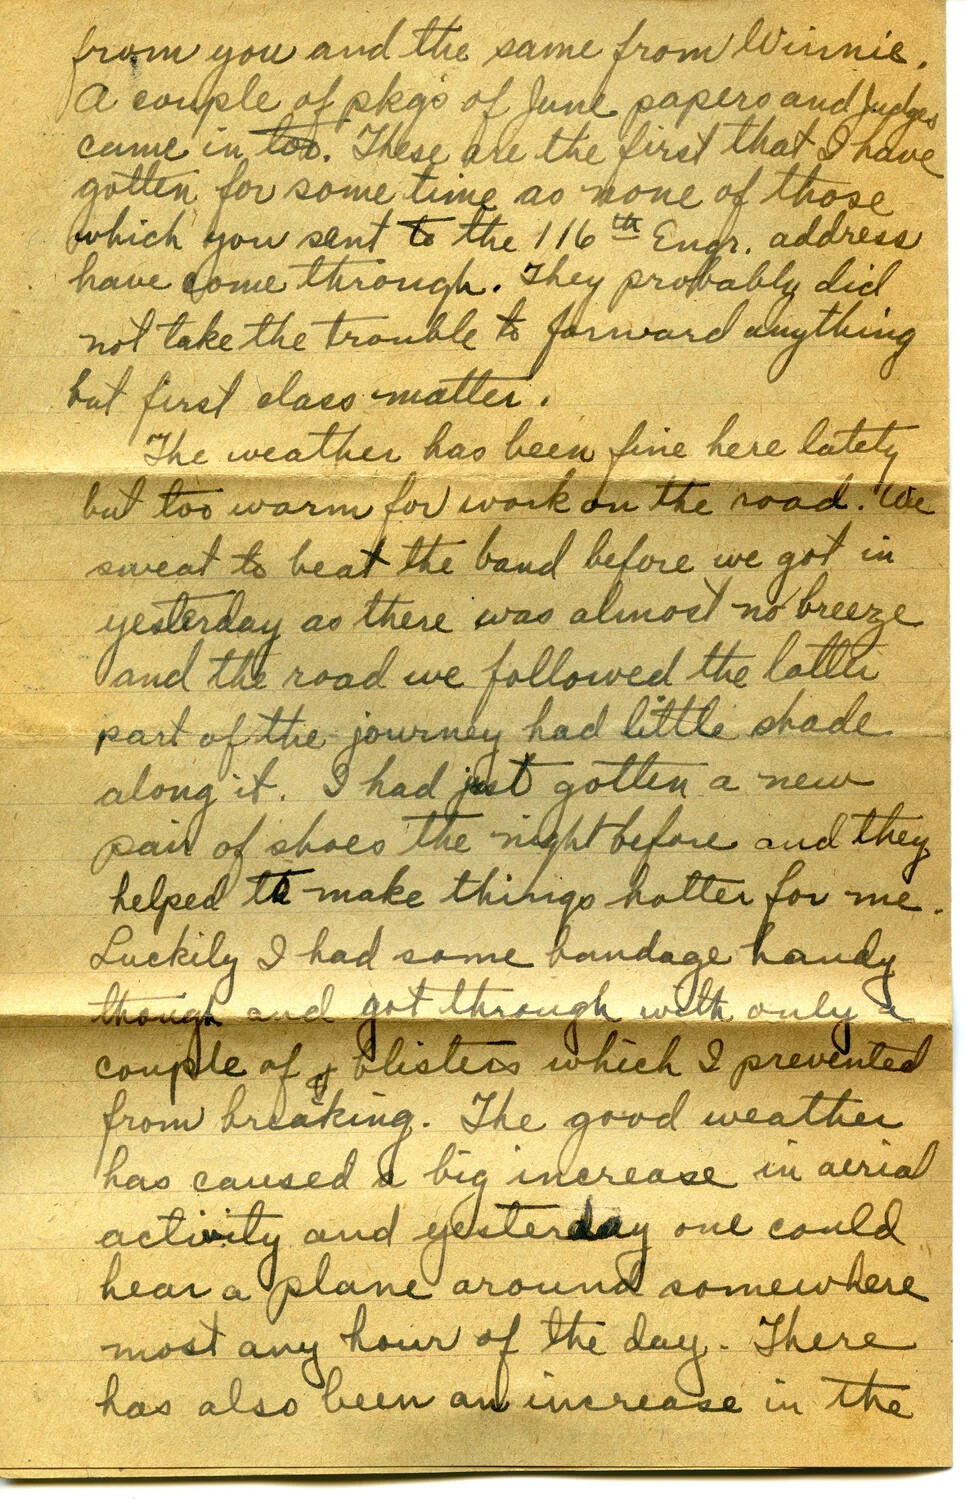 from you and the same from Winnie.
A couple of pkgs of June papers and Judges
came in too. These are the first that I have
gotten for some time as none of those
which you sent to the 116th Engr. address
have come through. They probably did
not take the trouble to forward anything
but first class matter.
The weather has been fine here lately
but too warm for work on the road. We
sweat to beat the band before we got in
yesterday as there was almost no breeze
and the road we followed the latter
part of the journey had little shade
along it. I had just gotten a new
pair of shoes the night before and they
helped to make things hotter for me.
Luckily I had some bandage handy
though and got through with only a
couple of blisters which I prevented
from breaking. The good weather
has caused a big increase in aerial
activity and yesterday one could
hear a plane around somewhere
most any hour of the day. There
has also been an increase in the